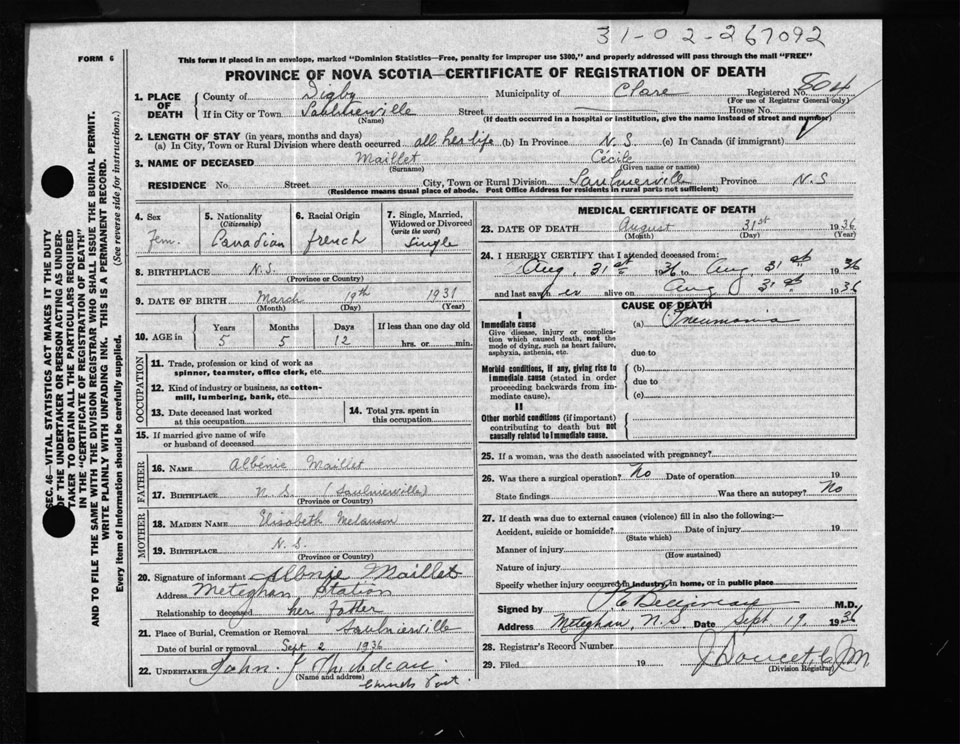 31-02-267092
FORM 6
This form if placed in an envelope, marked "Dominion Statistics—Free, penalty for improper use $300," and properly addressed will pass through the mail "FREE"
PROVINCE OF NOVA SCOTIA—CERTIFICATE OF REGISTRATION OF DEATH
SEC. 46—VITAL STATISTICS ACT MAKES IT THE DUTY
OF THE UNDERTAKER OR PERSON ACTING AS UNDER-
TAKER TO OBTAIN ALL THE PARTICULARS REQUIRED
IN THE "CERTIFICATE OF REGISTRATION OF DEATH"
AND TO FILE THE SAME WITH THE DIVISION REGISTRAR WHO SHALL ISSUE THE BURIAL PERMIT.
WRITE PLAINLY WITH UNFADING INK. THIS IS A PERMANENT RECORD.
Every item of Information should be carefully supplied. (See reverse side for instructions.)
1. PLACE OF DEATH
County of Digby Municipality of Clare Registered No. 804
(For use of Registrar General only)
If in City or Town Saulnierville Street House No.
(Name) (If death occurred in a hospital or institution, give the name instead of street and number)
2. LENGTH OF STAY (in years, months and days)
(a) In City, Town or Rural Division where death occurred all her life (b) In Province N. S. (c) In Canada (if immigrant)
3. NAME OF DECEASED Maillet Cécile
(Surname) (Given name or names)
RESIDENCE No. Street City, Town or Rural Division Saulnierville Province N. S
(Residence means usual place of abode. Post Office Address for residents in rural parts not sufficient)
4. Sex Fem.
5. Nationality (Citizenship) Canadian
6. Racial Origin french
7. Single, Married, Widowed or Divorced (write the word) Single
8. BIRTHPLACE N. S.
(Province or Country)
9. DATE OF BIRTH March 19th 1931
(Month) (Day) (Year)
10. AGE in Years 5 Months 5 Days 12 If less than one day old hrs. or min.
OCCUPATION
11. Trade, profession or kind of work as spinner, teamster, office clerk, etc.
12. Kind of industry or business, as cotton-mill, lumbering, bank, etc.
13. Date deceased last worked at this occupation
14. Total yrs. spent in this occupation
15. If married give name of wife or husband of deceased
FATHER
16. NAME Albénie Maillet
17. BIRTHPLACE N. S. (Saulnierville)
(Province or Country)
MOTHER
18. MAIDEN NAME Elisabeth Melanson
19. BIRTHPLACE N. S.
(Province or Country)
20. Signature of informant Albnie Maillet
Address Meteghan Station
Relationship to deceased her father
21. Place of Burial, Cremation or Removal Saulnierville
Date of burial or removal Sept 2 1936
22. UNDERTAKER John J Thibodeau
(Name and address)
Church Point.
MEDICAL CERTIFICATE OF DEATH
23. DATE OF DEATH August 31st 1936
(Month) (Day) (Year)
24. I HEREBY CERTIFY that I attended deceased from:
Aug. 31st 1936 to Aug. 31st 1936
and last saw her alive on Aug 31st 1936
CAUSE OF DEATH
I
Immediate cause
Give disease, injury or complication which caused death, not the mode of dying, such as heart failure, asphyxia, asthenia, etc.
(a) Pneumonia
due to
Morbid conditions, if any, giving rise to Immediate cause (stated in order proceeding backwards from immediate cause).
(b)
due to
(c)
II
Other morbid conditions (if important) contributing to death but not causally related to Immediate cause.
25. If a woman, was the death associated with pregnancy?
26. Was there a surgical operation? No Date of operation 19
State findings Was there an autopsy? No
27. If death was due to external causes (violence) fill in also the following:—
Accident, suicide or homicide? Date of injury 19
(State which)
Manner of injury
(How sustained)
Nature of injury
Specify whether injury occurred in industry, in home, or in public place
Signed by M.D.
Address Meteghan, N. S. Date Sept. 19 1936
28. Registrar's Record Number
29. Filed 19 J Doucet
(Division Registrar)